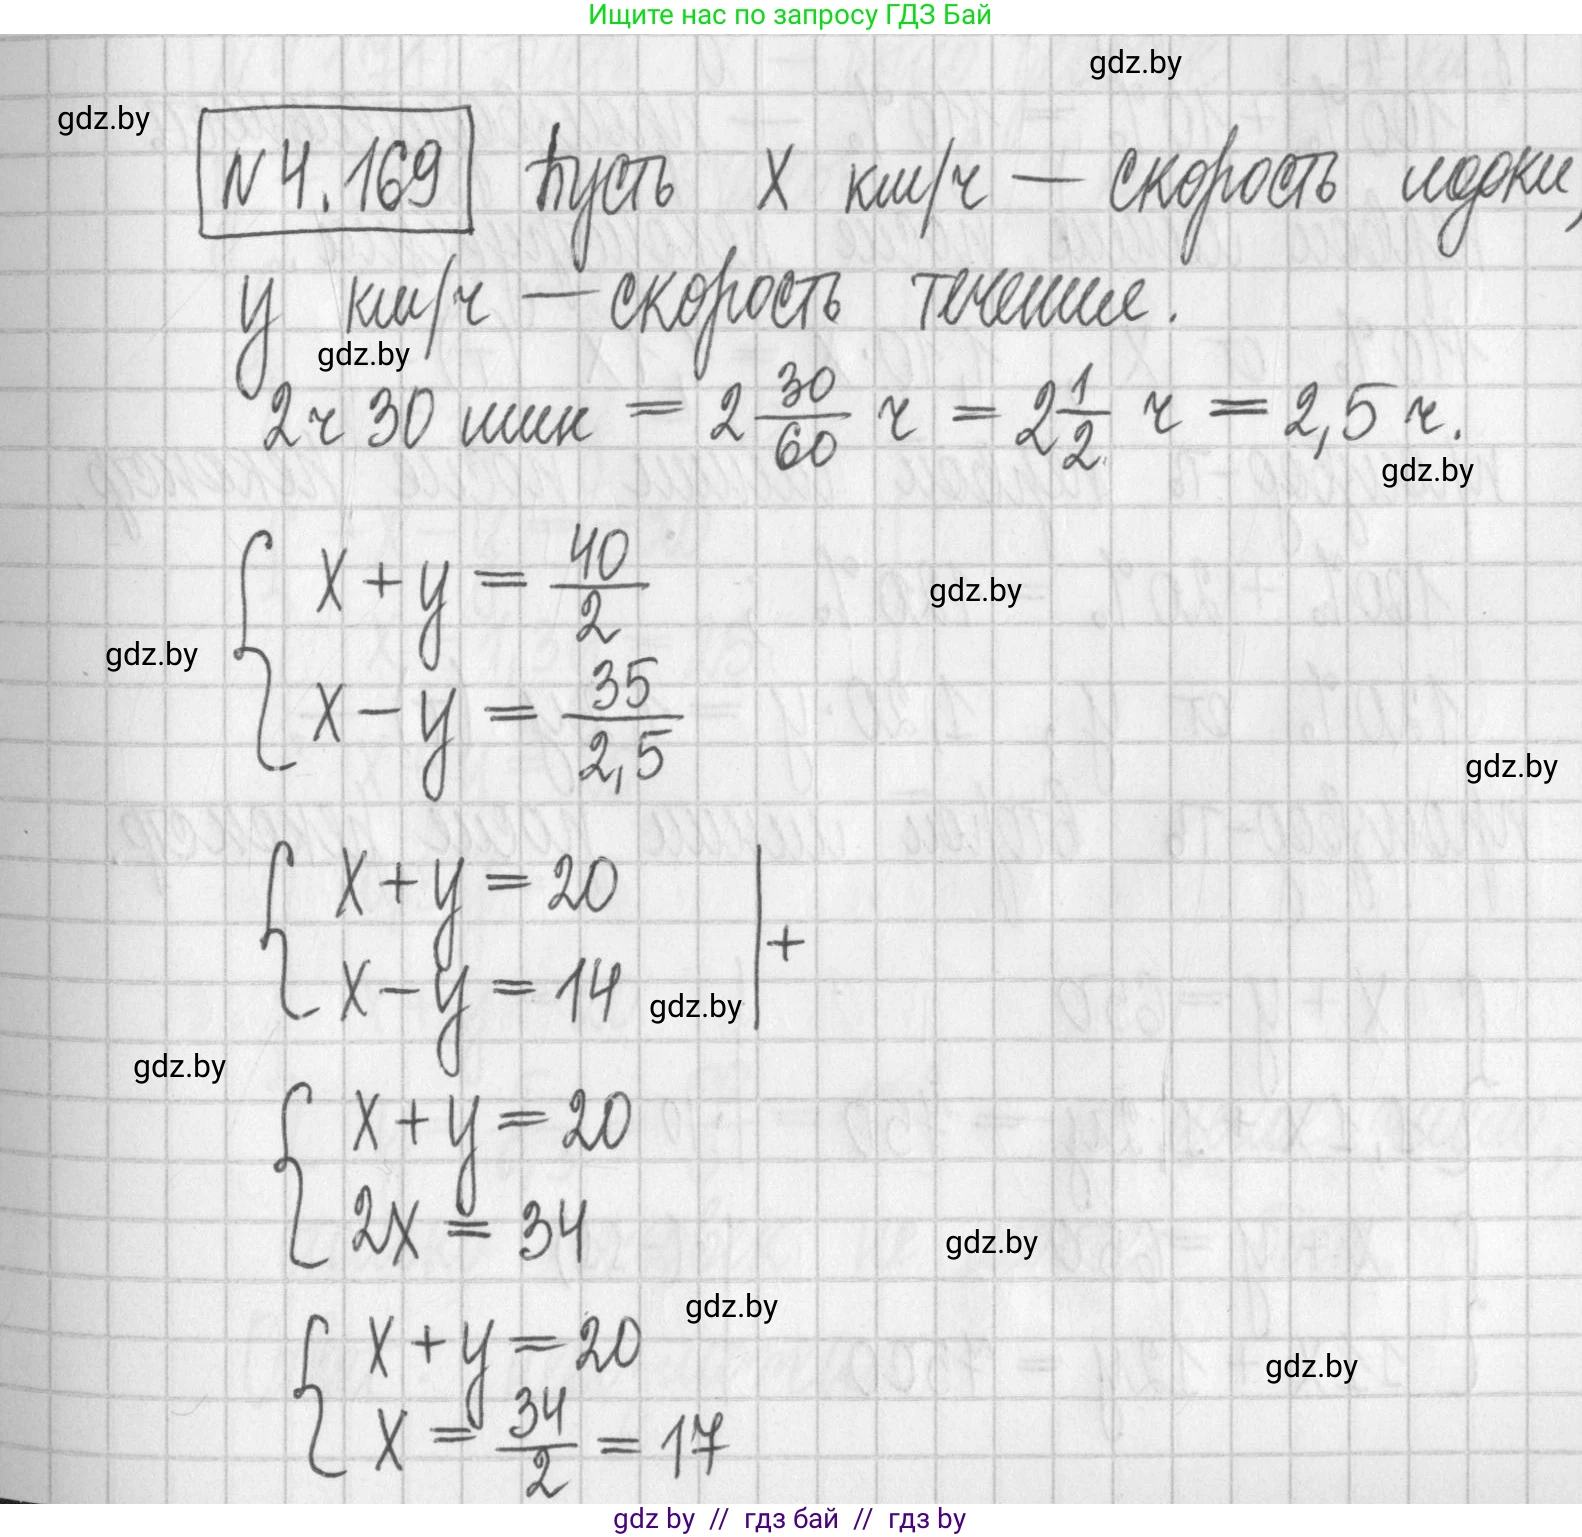 Ищите нас по запросу ГДЗ Бай
gdz.by
gdz.by
№4.169 Пусть x км/ч — скорость лодки,
y км/ч — скорость течения.
gdz.by
2 ч 30 мин = 2 30/60 ч = 2 1/2 ч = 2,5 ч.
gdz.by
x + y = 40/2
gdz.by
gdz.by
x - y = 35/2,5
gdz.by
x + y = 20
+
x - y = 14
gdz.by
gdz.by
x + y = 20
2x = 34
gdz.by
gdz.by
x + y = 20
gdz.by
x = 34/2 = 17
gdz by // гдз бай // гдз by